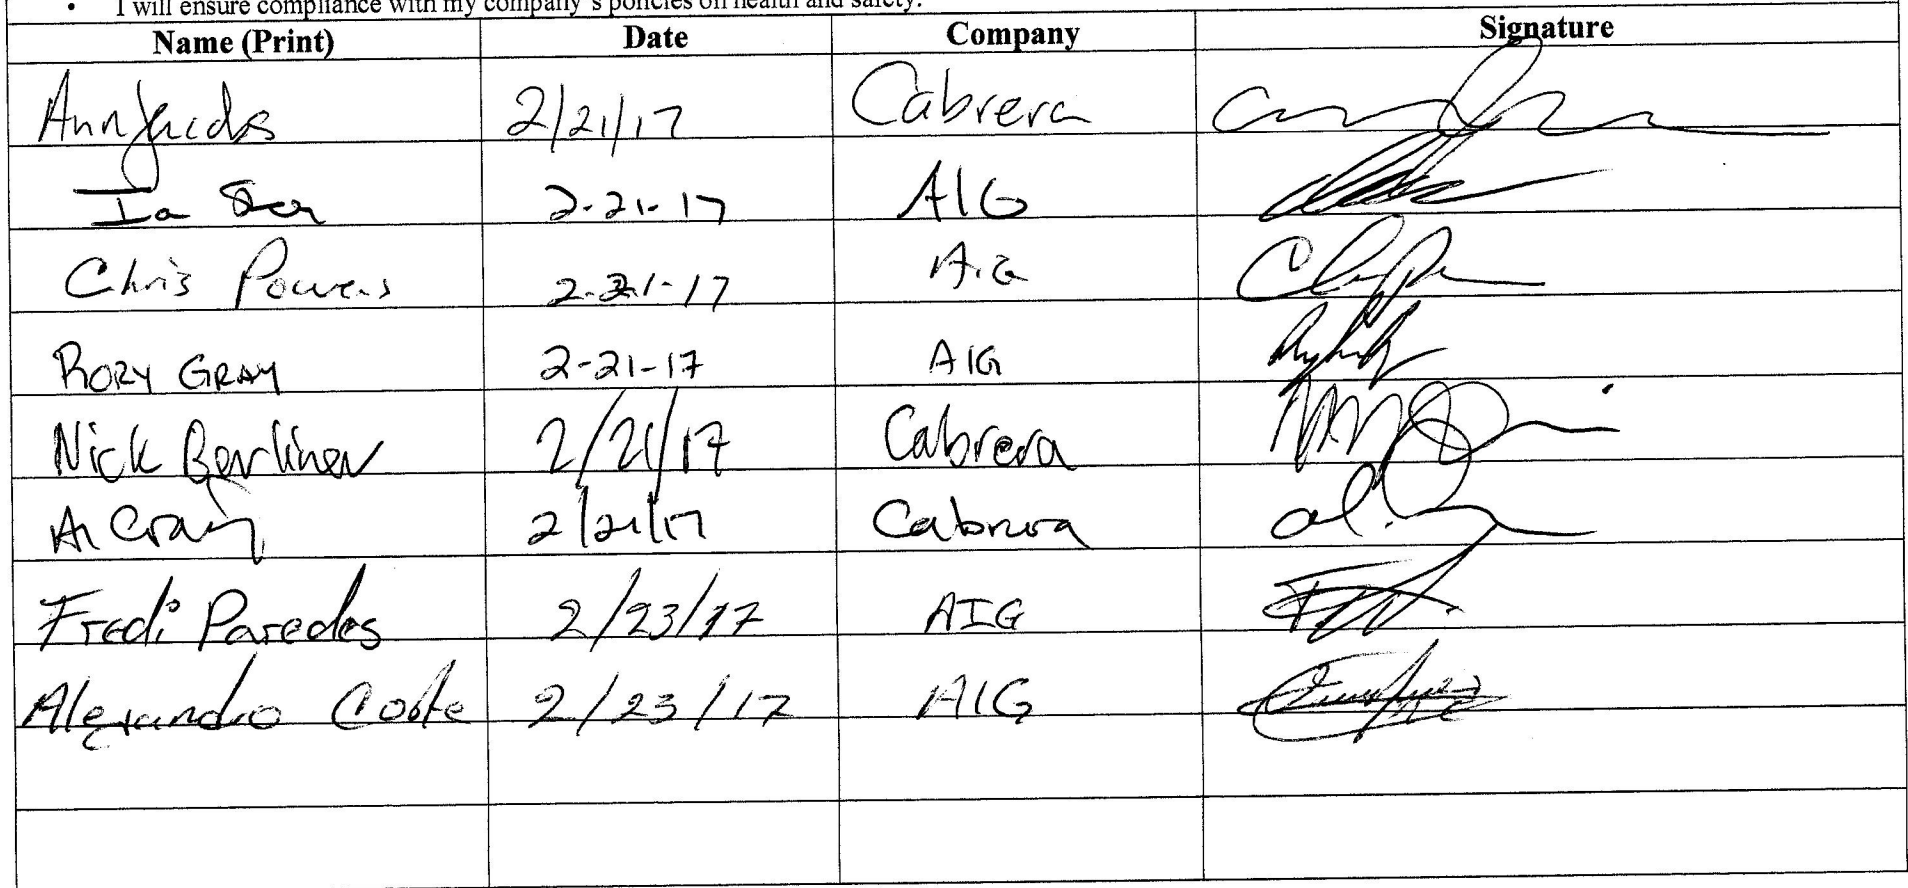 • I will ensure compliance with my company's policies on health and safety.
Name (Print) Date Company Signature
Ann Jacobs 2/21/17 Cabrera
2-21-17 AIG
Chris Powers 2-21-17 AIG
RORY GRAY 2-21-17 AIG
Nick Berliner 2/21/17 Cabrera
Al Craig 2/21/17 Cabrera
Fredi Paredes 2/23/17 AIG
Alejandro 2/23/17 AIG